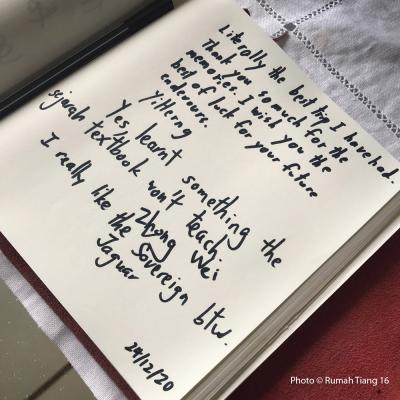 Literally the best trip I have had.
Thank you so much for the
memories. I wish you the
best of luck for your future
endeavors.
Yes, learnt something the
sejarah textbook won't teach.
Zhong Wei
I really like the Sovereign btw.
Jaguar
24/12/20
Photo © Rumah Tiang 16